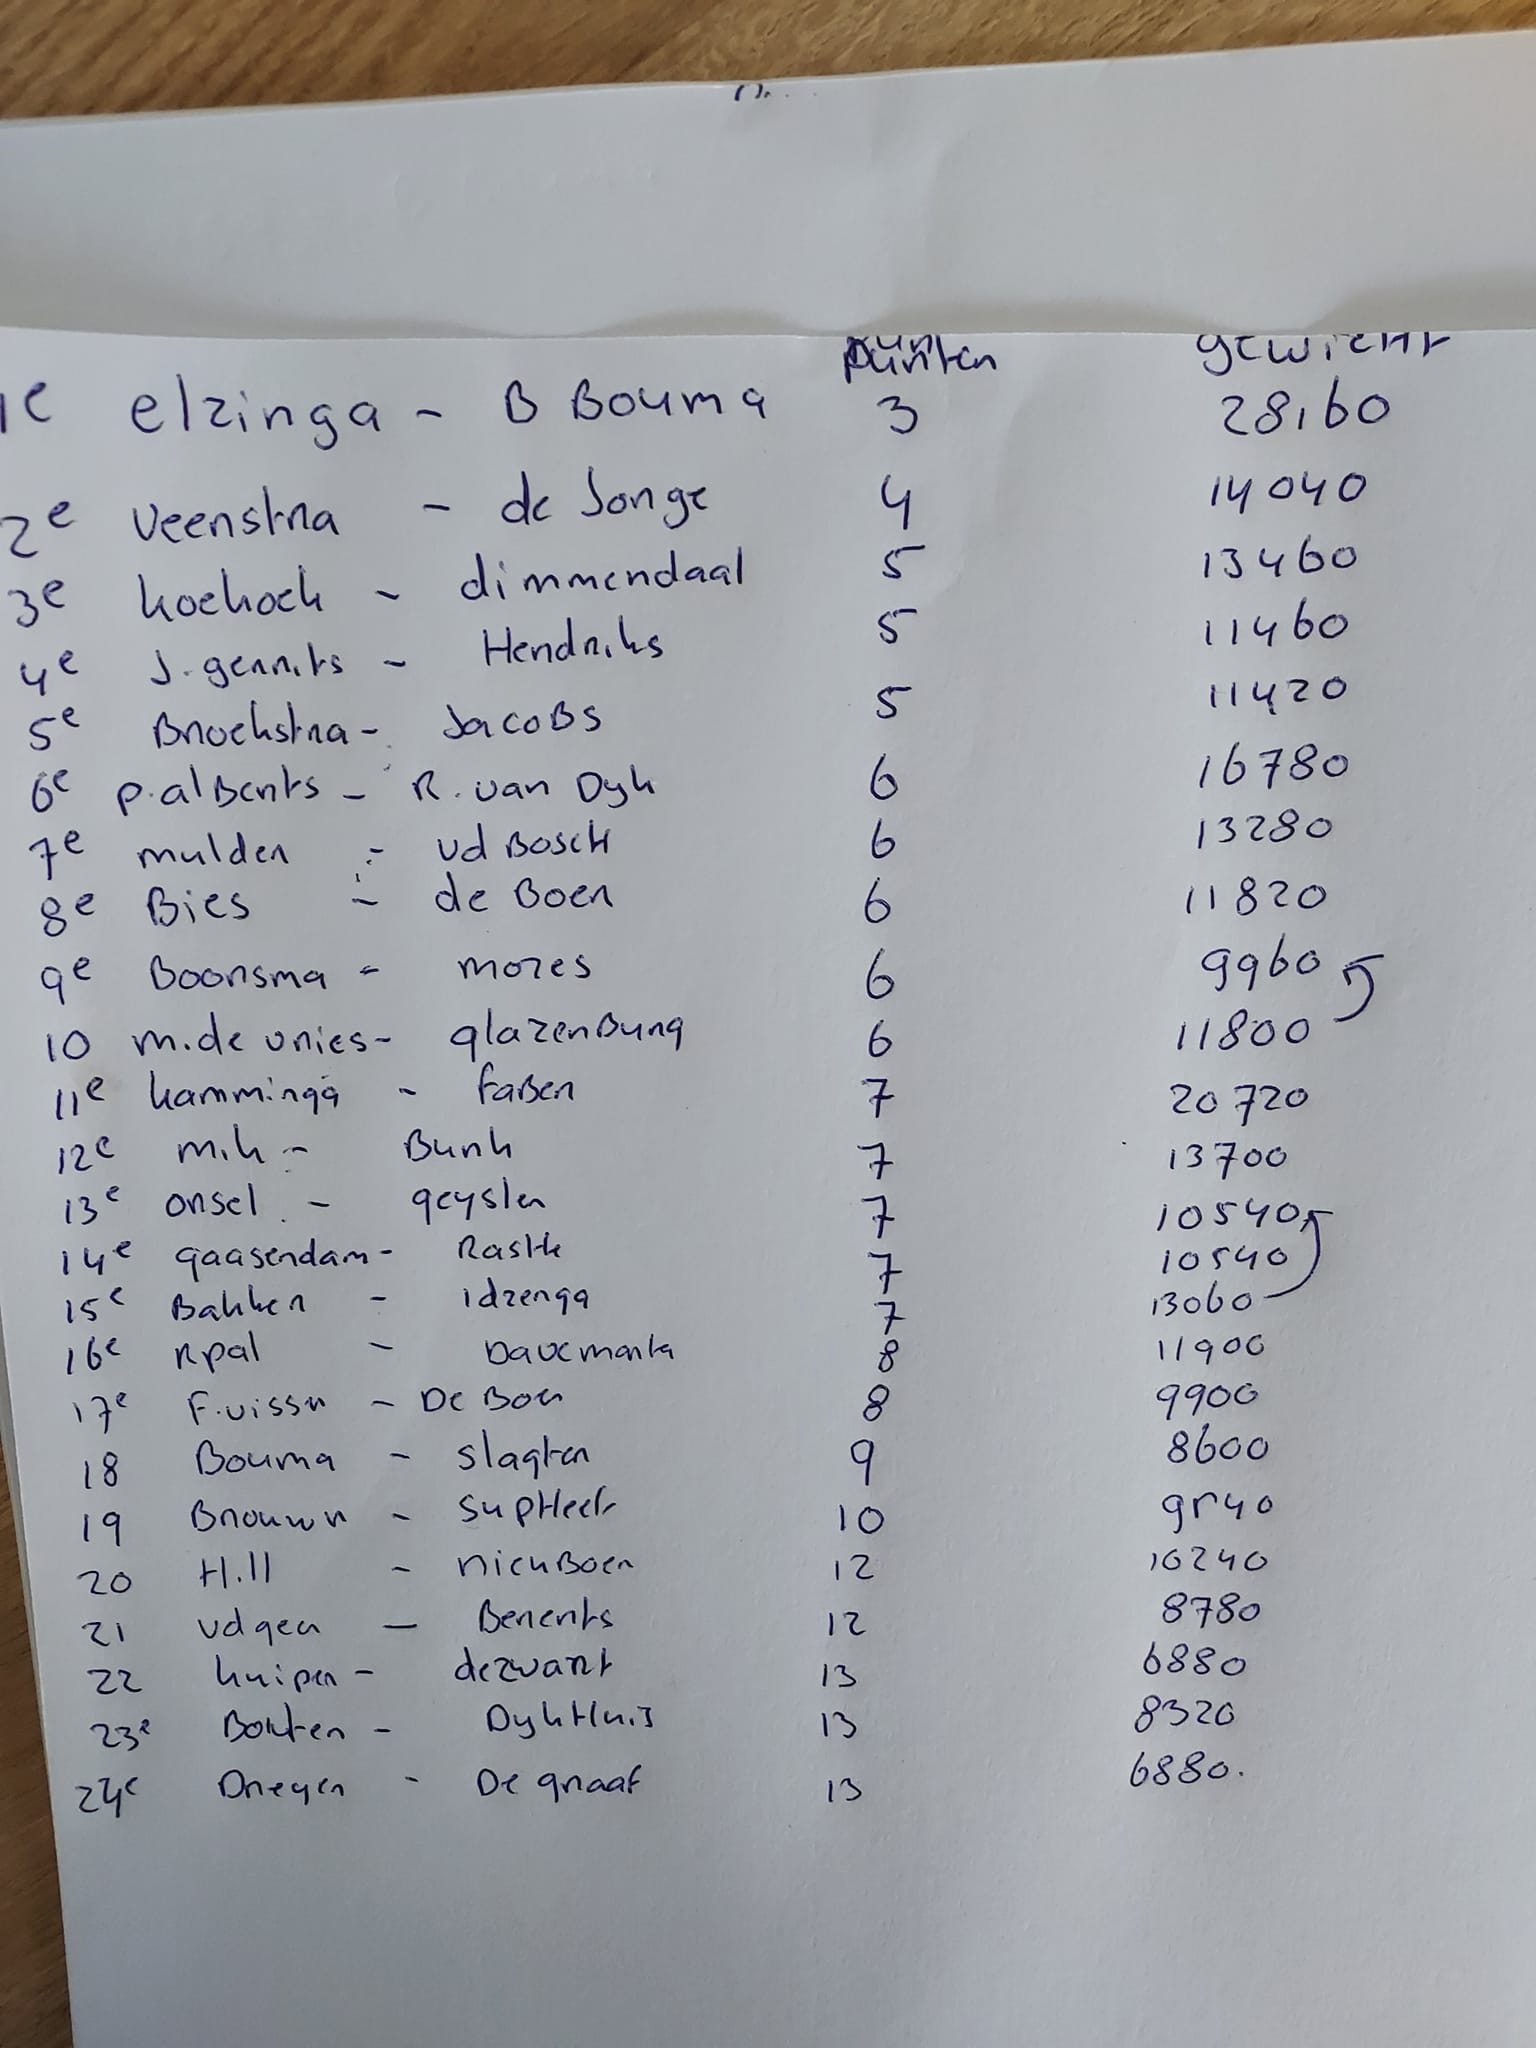 punten gewicht
1e elzinga - B Bouma 3 28160
2e Veenstra - de Jonge 4 14040
3e koekoek - dimmendaal 5 13460
4e J. gerrits - Hendriks 5 11460
5e Broekstra - JacoBs 5 11420
6e P. alBerts - R. van Dyk 6 16780
7e mulder - vd Bosch 6 13280
8e Bies - de Boer 6 11820
9e Boorsma - mozes 6 9960
10 M. de vries - glazenBurg 6 11800
11e kamminga - faBer 7 20720
12e mik - Bunk 7 13700
13e orsel - geysler 7 10540
14e gaasendam - Rasth 7 10540
15e Bakker - idzenga 7 13060
16e R pal - 8 11900
17e F. visser - De Boer 8 9900
18 Bouma - slagter 9 8600
19 Brouwer - supHeert 10 9540
20 Hill - nieuBoer 12 10240
21 vd geer - Berents 12 8780
22 kuiper - de zwart 13 6880
23e Bouten - DykHuis 13 8320
24e Dreyer - De graaf 13 6880.